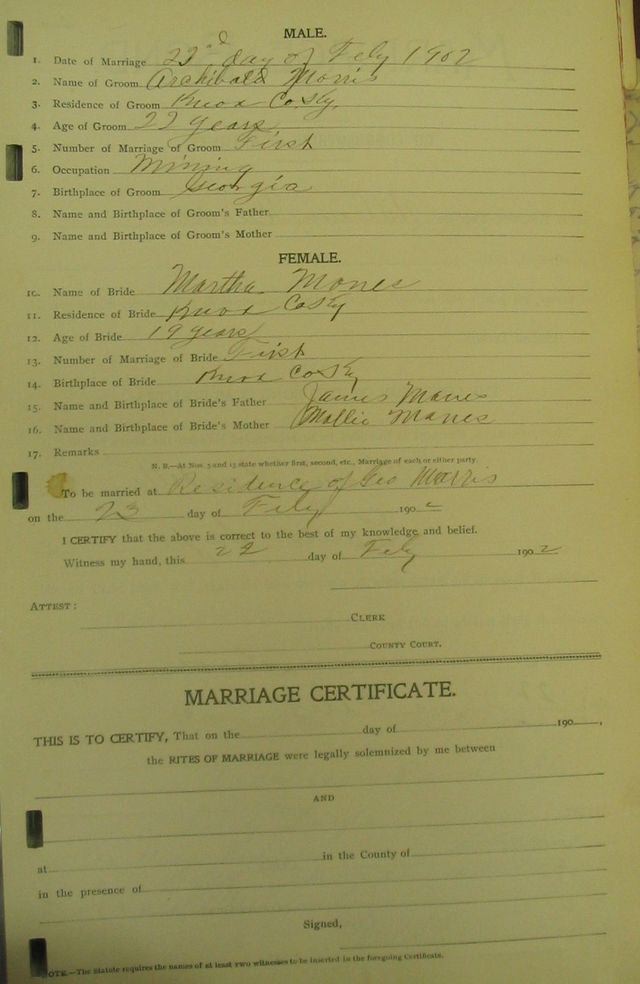 MALE.
1. Date of Marriage 22nd day of Feby 1902
2. Name of Groom Archibald Morris
3. Residence of Groom Knox Co Ky.
4. Age of Groom 22 years
5. Number of Marriage of Groom First
6. Occupation Mining
7. Birthplace of Groom Georgia
8. Name and Birthplace of Groom's Father
9. Name and Birthplace of Groom's Mother
FEMALE.
10. Name of Bride Martha Mones
11. Residence of Bride Knox Co Ky
12. Age of Bride 19 years
13. Number of Marriage of Bride First
14. Birthplace of Bride Knox Co Ky
15. Name and Birthplace of Bride's Father James Manes
16. Name and Birthplace of Bride's Mother Mollie Manes
17. Remarks
N. B.—At Nos. 5 and 13 state whether first, second, etc., Marriage of each or either party.
To be married at Residence of Geo Morris
on the 23 day of Feby 1902
I CERTIFY that the above is correct to the best of my knowledge and belief.
Witness my hand, this 22 day of Feby 1902
ATTEST:
CLERK
COUNTY COURT.
MARRIAGE CERTIFICATE.
THIS IS TO CERTIFY, That on the day of 190 ,
the RITES OF MARRIAGE were legally solemnized by me between
AND
at in the County of
in the presence of
Signed,
NOTE.—The Statute requires the names of at least two witnesses to be inserted in the foregoing Certificate.